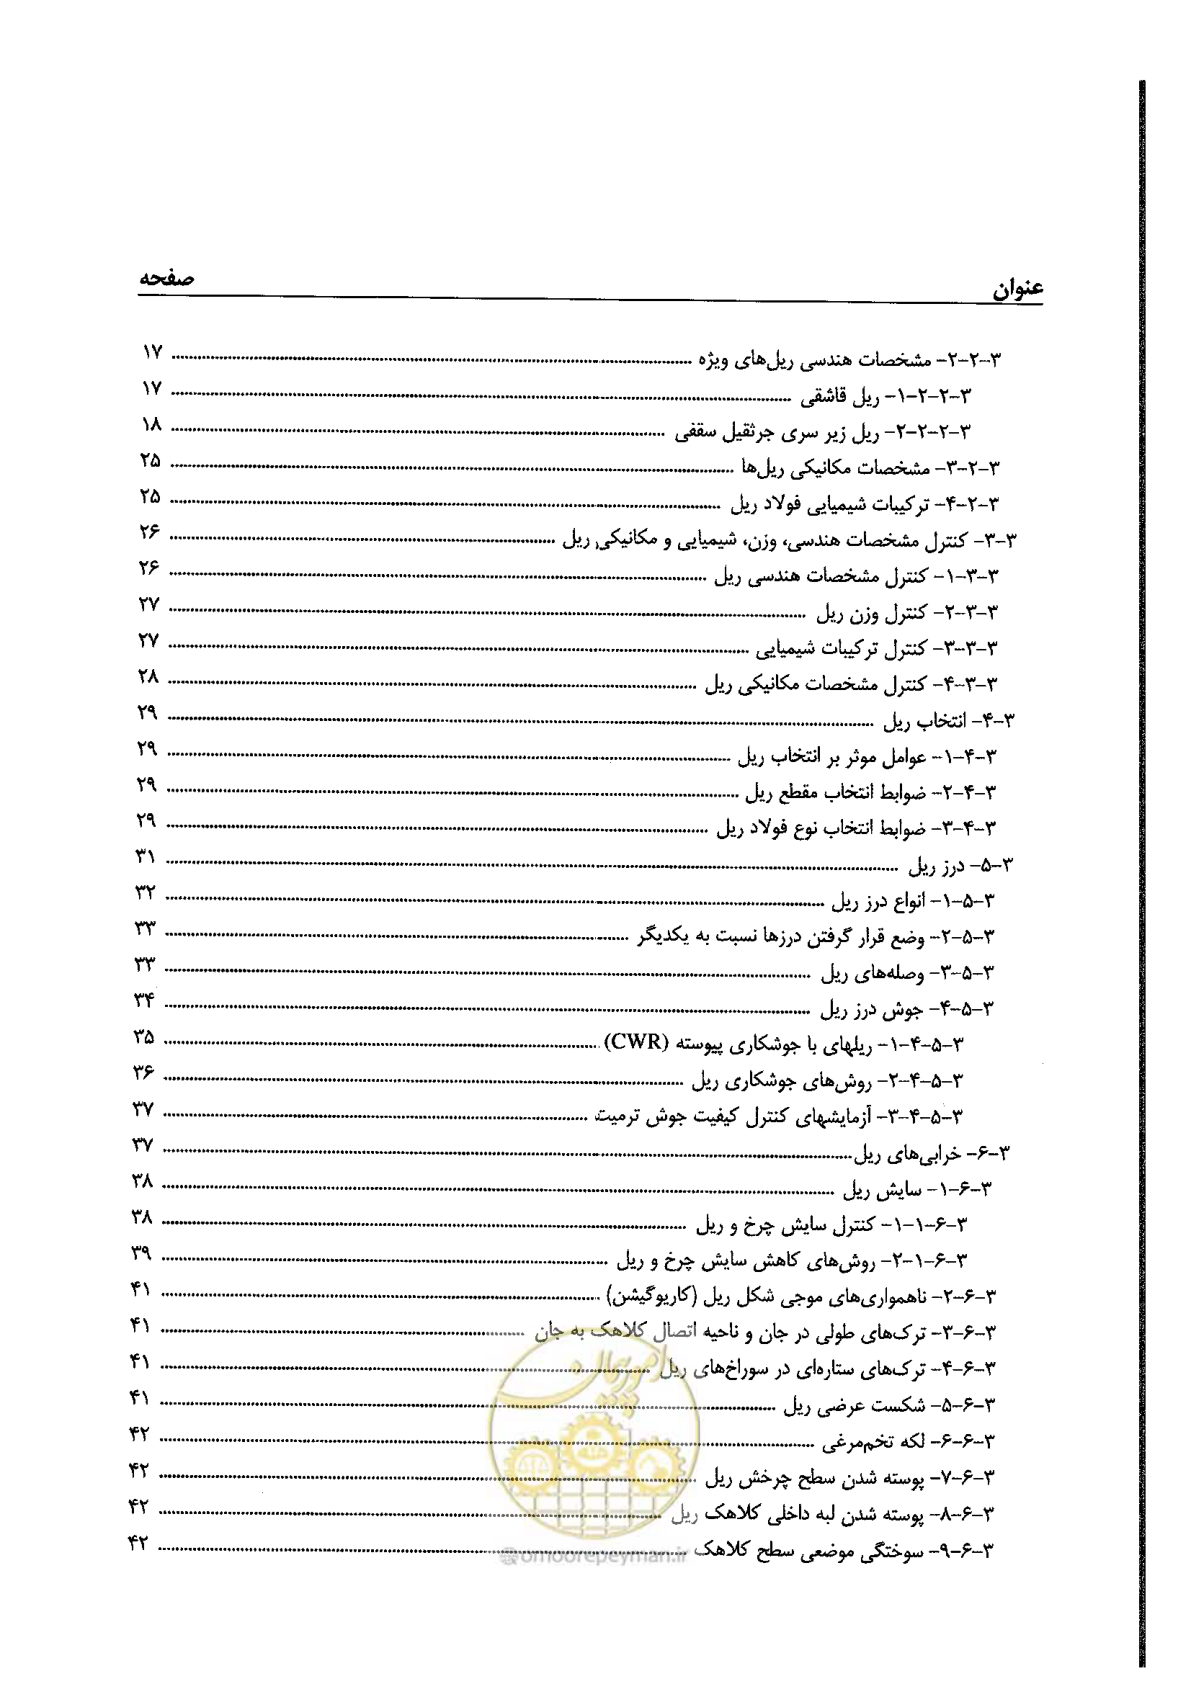 عنوان صفحه
۳-۲-۲- مشخصات هندسی ریل‌های ویژه ۱۷
۳-۲-۲-۱- ریل قاشقی ۱۷
۳-۲-۲-۲- ریل زیر سری جرثقیل سقفی ۱۸
۳-۲-۳- مشخصات مکانیکی ریل‌ها ۲۵
۳-۲-۴- ترکیبات شیمیایی فولاد ریل ۲۵
۳-۳- کنترل مشخصات هندسی، وزن، شیمیایی و مکانیکی ریل ۲۶
۳-۳-۱- کنترل مشخصات هندسی ریل ۲۶
۳-۳-۲- کنترل وزن ریل ۲۷
۳-۳-۳- کنترل ترکیبات شیمیایی ۲۷
۳-۳-۴- کنترل مشخصات مکانیکی ریل ۲۸
۳-۴- انتخاب ریل ۲۹
۳-۴-۱- عوامل موثر بر انتخاب ریل ۲۹
۳-۴-۲- ضوابط انتخاب مقطع ریل ۲۹
۳-۴-۳- ضوابط انتخاب نوع فولاد ریل ۲۹
۳-۵- درز ریل ۳۱
۳-۵-۱- انواع درز ریل ۳۲
۳-۵-۲- وضع قرار گرفتن درزها نسبت به یکدیگر ۳۳
۳-۵-۳- وصله‌های ریل ۳۳
۳-۵-۴- جوش درز ریل ۳۴
۳-۵-۴-۱- ریلهای با جوشکاری پیوسته (CWR) ۳۵
۳-۵-۴-۲- روش‌های جوشکاری ریل ۳۶
۳-۵-۴-۳- آزمایشهای کنترل کیفیت جوش ترمیت ۳۷
۳-۶- خرابی‌های ریل ۳۷
۳-۶-۱- سایش ریل ۳۸
۳-۶-۱-۱- کنترل سایش چرخ و ریل ۳۸
۳-۶-۱-۲- روش‌های کاهش سایش چرخ و ریل ۳۹
۳-۶-۲- ناهمواری‌های موجی شکل ریل (کاریوگیشن) ۴۱
۳-۶-۳- ترک‌های طولی در جان و ناحیه اتصال کلاهک به جان ۴۱
۳-۶-۴- ترک‌های ستاره‌ای در سوراخ‌های ریل ۴۱
۳-۶-۵- شکست عرضی ریل ۴۱
۳-۶-۶- لکه تخم‌مرغی ۴۲
۳-۶-۷- پوسته شدن سطح چرخش ریل ۴۲
۳-۶-۸- پوسته شدن لبه داخلی کلاهک ریل ۴۲
۳-۶-۹- سوختگی موضعی سطح کلاهک ۴۲
امور پیمان
@omoorepeyman.ir